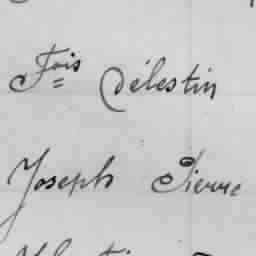 Fois Célestin
Joseph Pierre